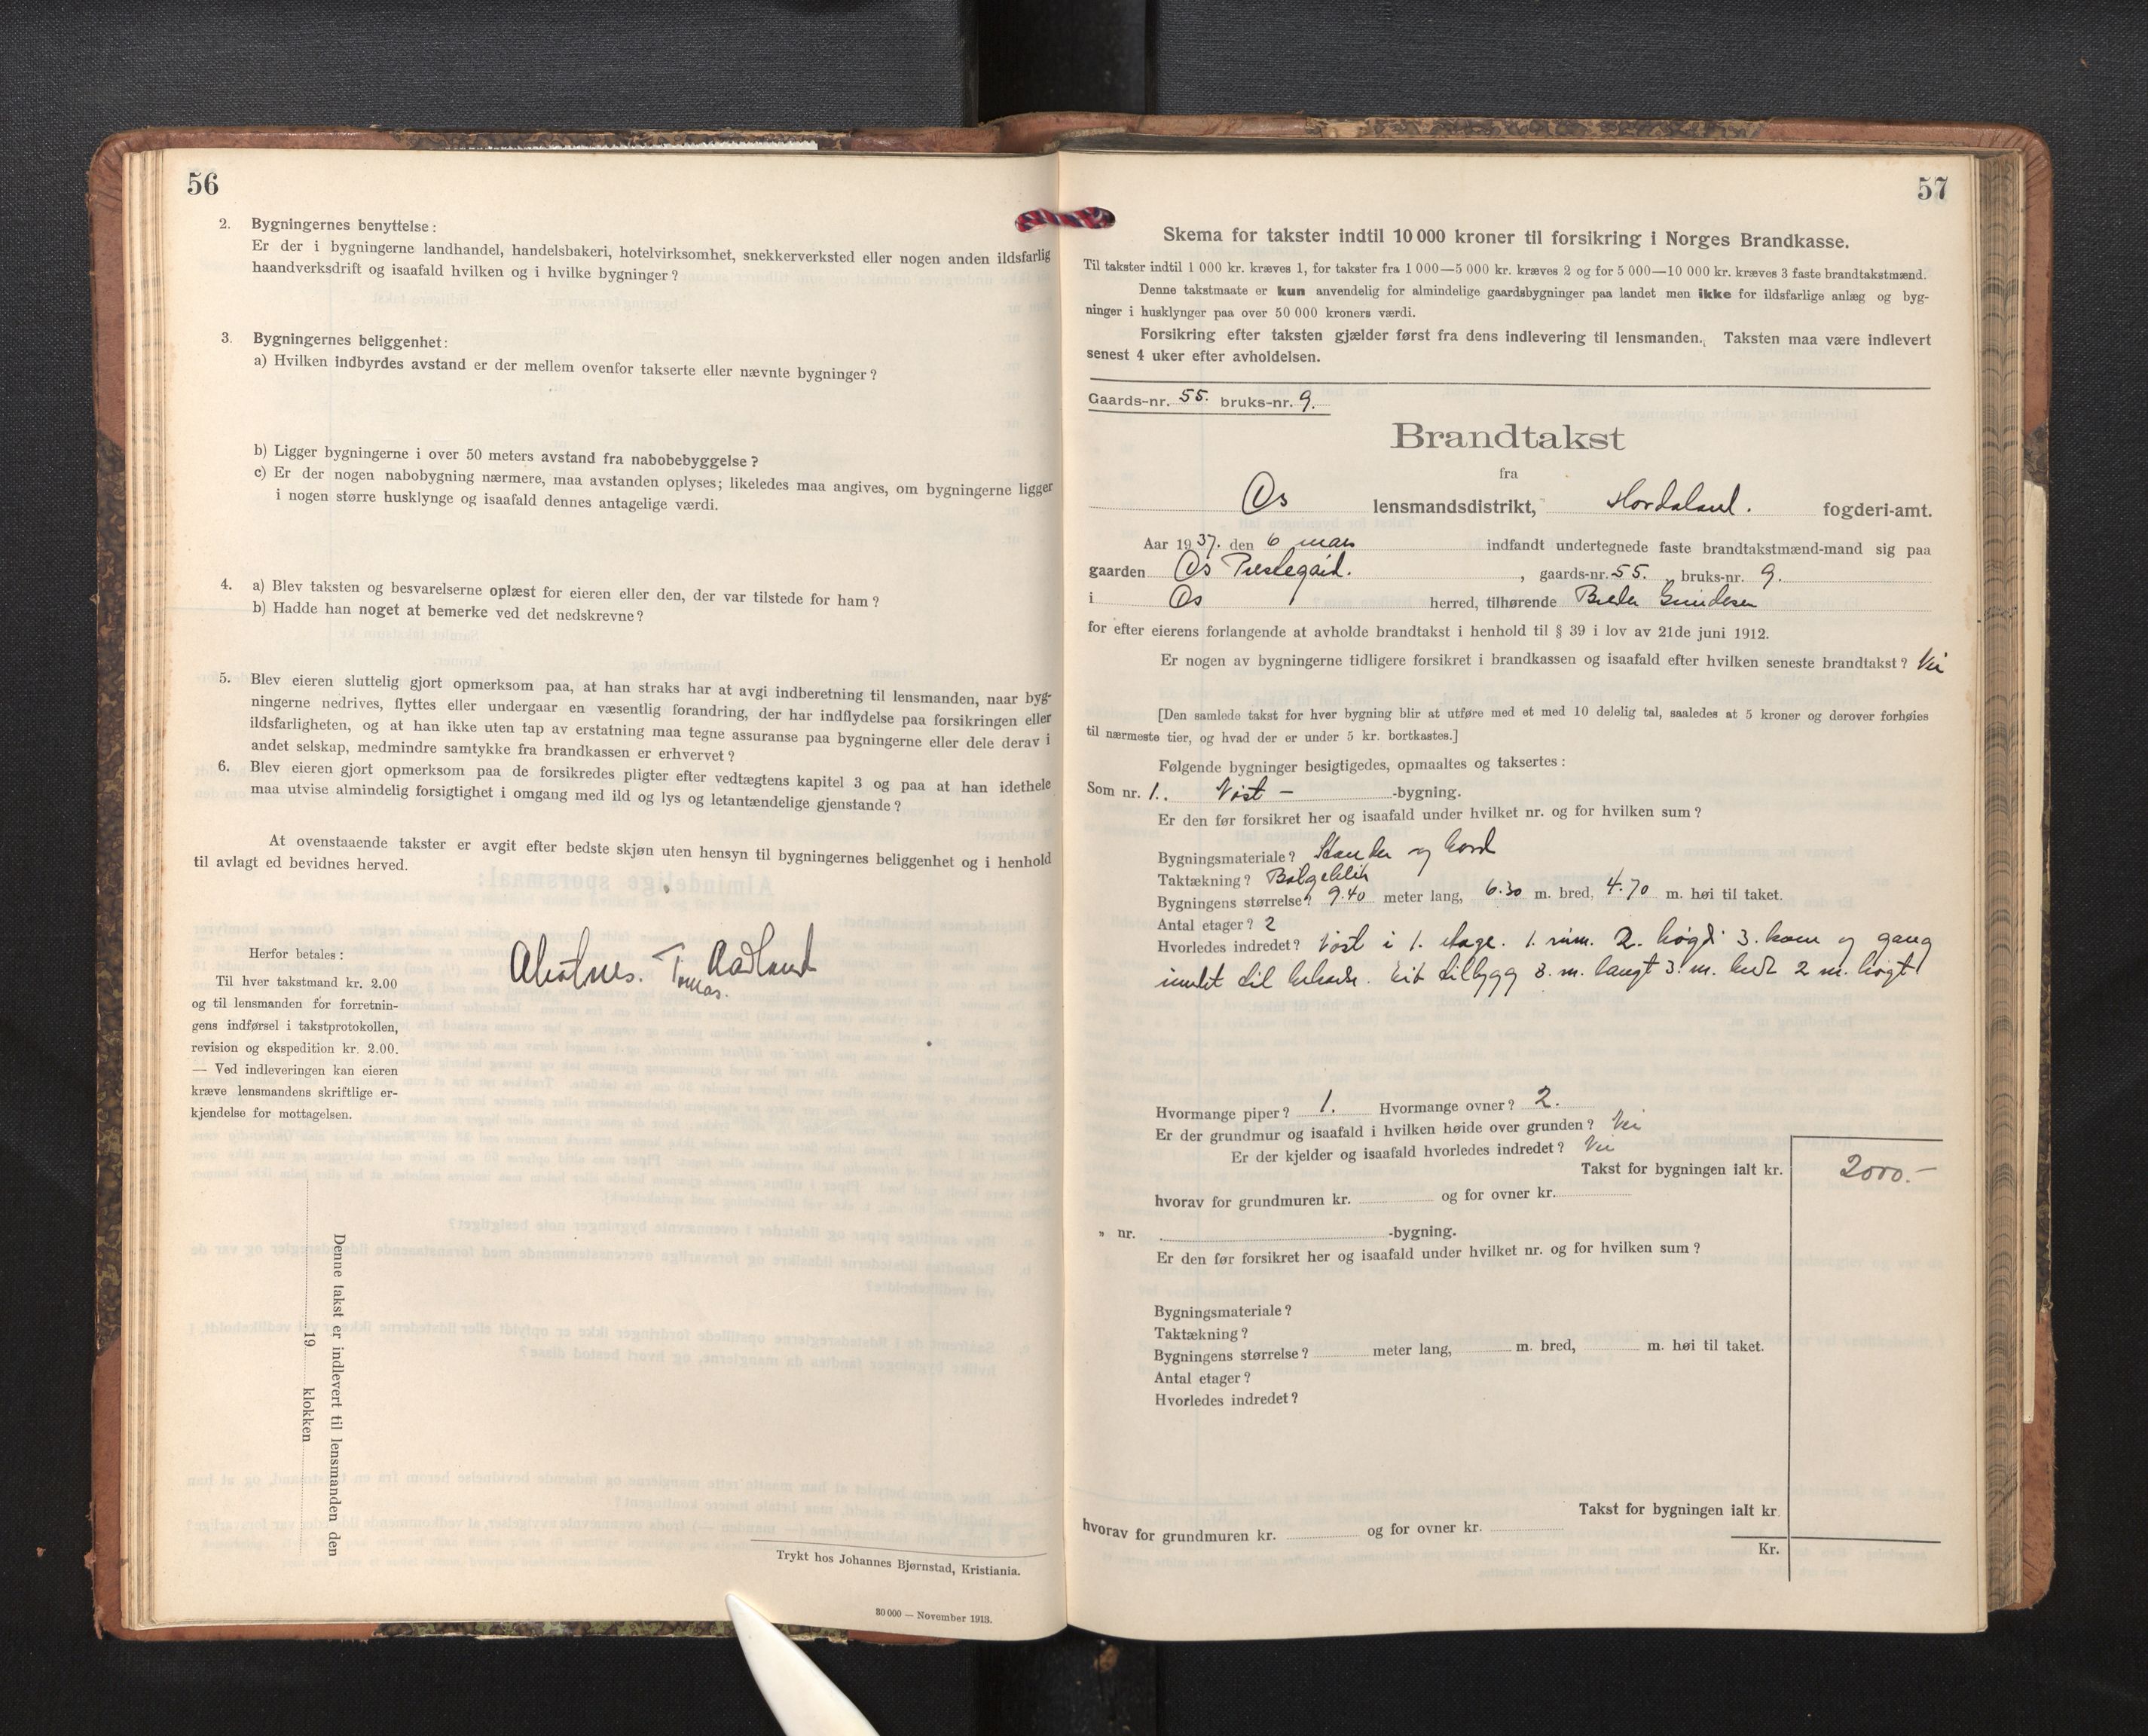 56
2. Bygningernes benyttelse:
Er der i bygningerne landhandel, handelsbakeri, hotelvirksomhet, snekkerverksted eller nogen anden ildsfarlig
haandverksdrift og isaafald hvilken og i hvilke bygninger?
3. Bygningernes beliggenhet:
a) Hvilken indbyrdes avstand er der mellem ovenfor takserte eller nævnte bygninger?
b) Ligger bygningerne i over 50 meters avstand fra nabobebyggelse?
c) Er der nogen nabobygning nærmere, maa avstanden oplyses; likeledes maa angives, om bygningerne ligger
i nogen større husklynge og isaafald dennes antagelige værdi.
4. a) Blev taksten og besvarelserne oplæst for eieren eller den, der var tilstede for ham?
b) Hadde han noget at bemerke ved det nedskrevne?
5. Blev eieren sluttelig gjort opmerksom paa, at han straks har at avgi indberetning til lensmanden, naar byg-
ningerne nedrives, flyttes eller undergaar en væsentlig forandring, der har indflydelse paa forsikringen eller
ildsfarligheten, og at han ikke uten tap av erstatning maa tegne assuranse paa bygningerne eller dele derav i
andet selskap, medmindre samtykke fra brandkassen er erhvervet?
6. Blev eieren gjort opmerksom paa de forsikredes pligter efter vedtægtens kapitel 3 og paa at han idethele
maa utvise almindelig forsigtighet i omgang med ild og lys og letantændelige gjenstande?
At ovenstaaende takster er avgit efter bedste skjøn uten hensyn til bygningernes beliggenhet og i henhold
til avlagt ed bevidnes herved.
Tomas Aadland
Herfor betales:
Til hver takstmand kr. 2.00
og til lensmanden for forretnin-
gens indførsel i takstprotokollen,
revision og ekspedition kr. 2.00.
— Ved indleveringen kan eieren
kræve lensmandens skriftlige er-
kjendelse for mottagelsen.
Denne takst er indlevert til lensmanden den
19 klokken
Trykt hos Johannes Bjørnstad, Kristiania.
30 000 — November 1913.
57
Skema for takster indtil 10 000 kroner til forsikring i Norges Brandkasse.
Til takster indtil 1 000 kr. kræves 1, for takster fra 1 000—5 000 kr. kræves 2 og for 5 000—10 000 kr. kræves 3 faste brandtakstmænd.
Denne takstmaate er kun anvendelig for almindelige gaardsbygninger paa landet men ikke for ildsfarlige anlæg og byg-
ninger i husklynger paa over 50 000 kroners værdi.
Forsikring efter taksten gjælder først fra dens indlevering til lensmanden. Taksten maa være indlevert
senest 4 uker efter avholdelsen.
Gaards-nr. 55. bruks-nr. 9.
Brandtakst
fra
Os lensmandsdistrikt, Hordaland. fogderi-amt.
Aar 1937. den 6 mars indfandt undertegnede faste brandtakstmænd-mand sig paa
gaarden Os Prestegård. , gaards-nr. 55. , bruks-nr. 9.
i Os herred, tilhørende
for efter eierens forlangende at avholde brandtakst i henhold til § 39 i lov av 21de juni 1912.
Er nogen av bygningerne tidligere forsikret i brandkassen og isaafald efter hvilken seneste brandtakst? Nei
[Den samlede takst for hver bygning blir at utføre med et med 10 delelig tal, saaledes at 5 kroner og derover forhøies
til nærmeste tier, og hvad der er under 5 kr. bortkastes.]
Følgende bygninger besigtigedes, opmaaltes og taksertes:
Som nr. 1. Nøst — -bygning.
Er den før forsikret her og isaafald under hvilket nr. og for hvilken sum?
Bygningsmateriale? Stender og bord
Taktækning? Bølgeblik
Bygningens størrelse? 9.40 meter lang, 6.30 m. bred, 4.70 m. høi til taket.
Antal etager? 2
Hvorledes indredet? Nøst i 1. etage. 1. rum. 2. høgdi 3. kom og gang
til bygg 3. m. langt 3. m. bredt 2 m. høgt
Hvormange piper? 1. Hvormange ovner? 2.
Er der grundmur og isaafald i hvilken høide over grunden? Nei
Er der kjelder og isaafald hvorledes indredet? Nei
Takst for bygningen ialt kr. 2000.—
hvorav for grundmuren kr. og for ovner kr.
" nr. -bygning.
Er den før forsikret her og isaafald under hvilket nr. og for hvilken sum?
Bygningsmateriale?
Taktækning?
Bygningens størrelse? meter lang, m. bred, m. høi til taket.
Antal etager?
Hvorledes indredet?
Takst for bygningen ialt kr.
hvorav for grundmuren kr. og for ovner kr.
Kr.